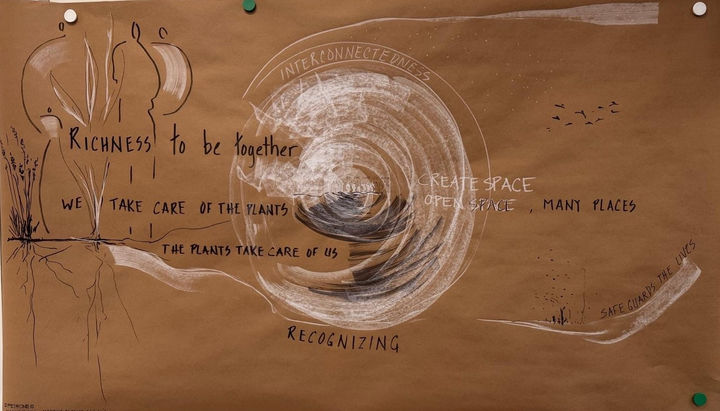 INTERCONNECTEDNESS
RICHNESS to be together
CREATE SPACE
OPEN SPACE , MANY PLACES
WE TAKE CARE OF THE PLANTS
THE PLANTS TAKE CARE OF US
SAFE GUARDS THE LIVES
RECOGNIZING